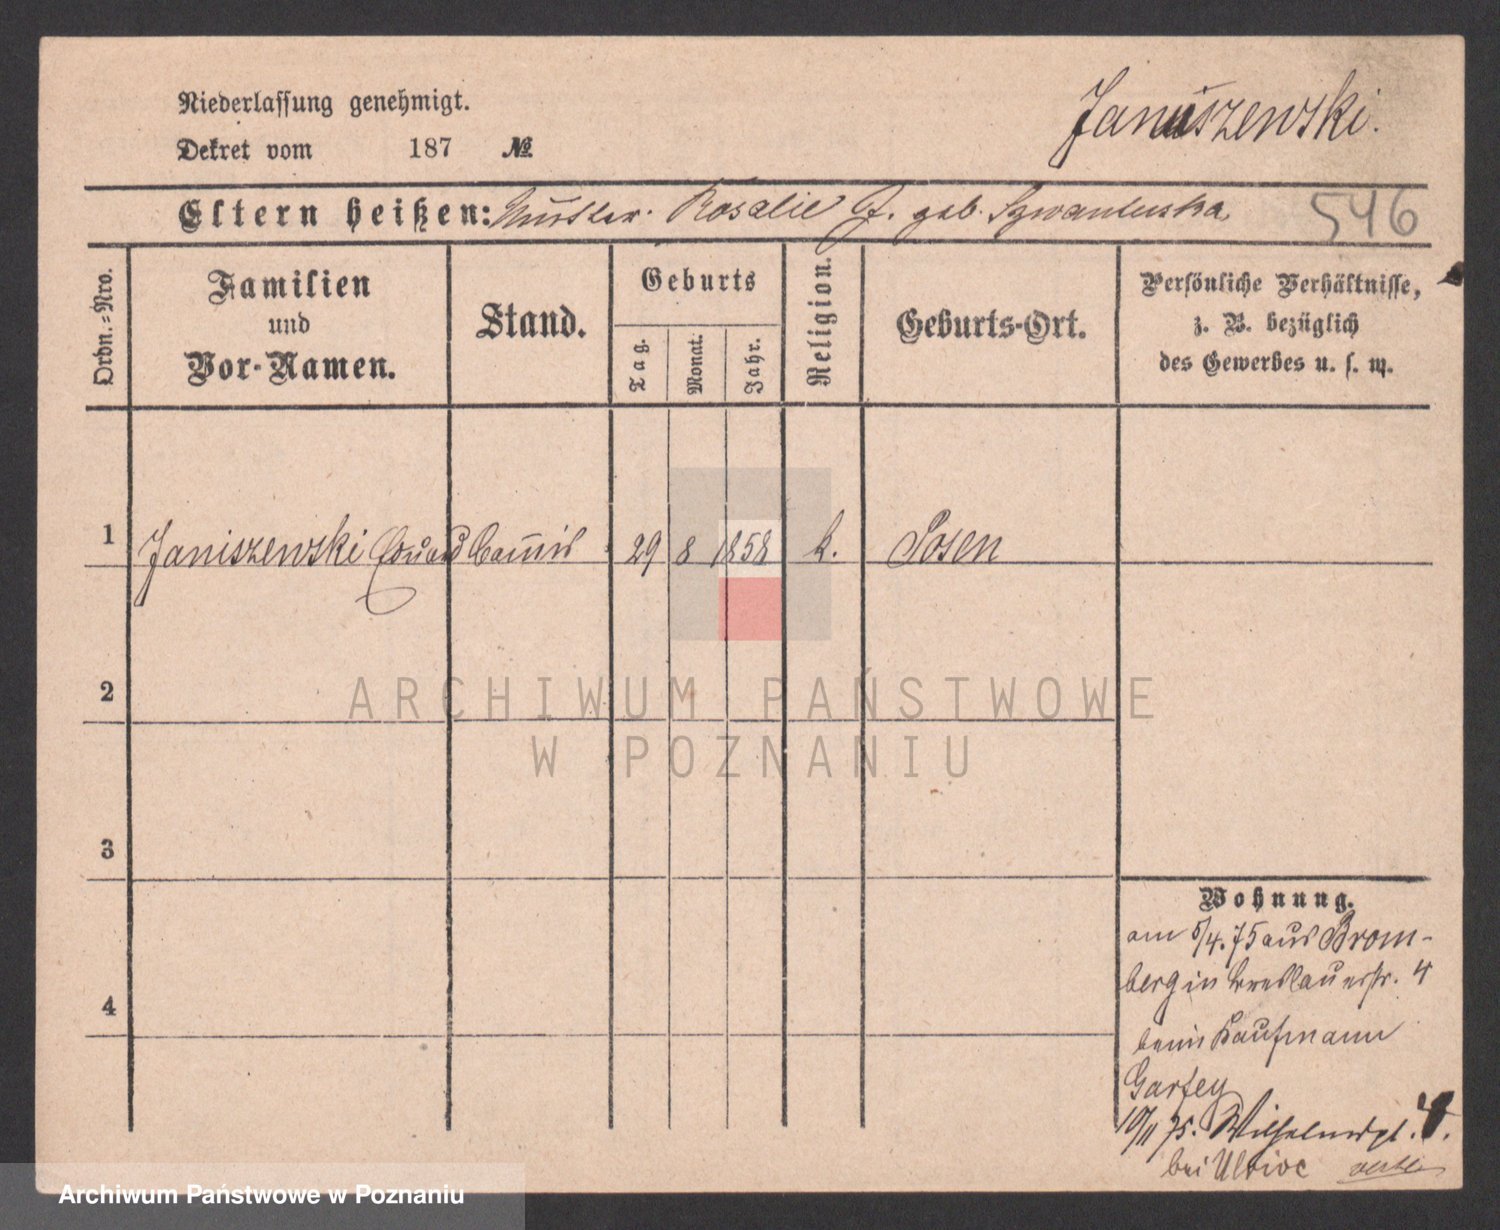 Niederlassung genehmigt.
Januszewski.
Dekret vom 187 №
Eltern heißen: Mutter. Rosalie J. geb. Szwantuska
546
Ordn.-Nro.
Familien
und
Vor-Namen.
Stand.
Geburts
Tag.
Monat.
Jahr.
Religion.
Geburts-Ort.
Persönliche Verhältnisse,
z. B. bezüglich
des Gewerbes u. s. w.
1 Janiszewski Eduard Commis 29 8 1858 k. Posen
2
3
4
Wohnung.
am 5/4.75 aus Brom-
berg in Breslauerstr. 4
beim Kaufmann
Garfey
10/11 75. Wilhelmspl. 4.
bei Ulrice
ARCHIWUM PAŃSTWOWE
W POZNANIU
Archiwum Państwowe w Poznaniu